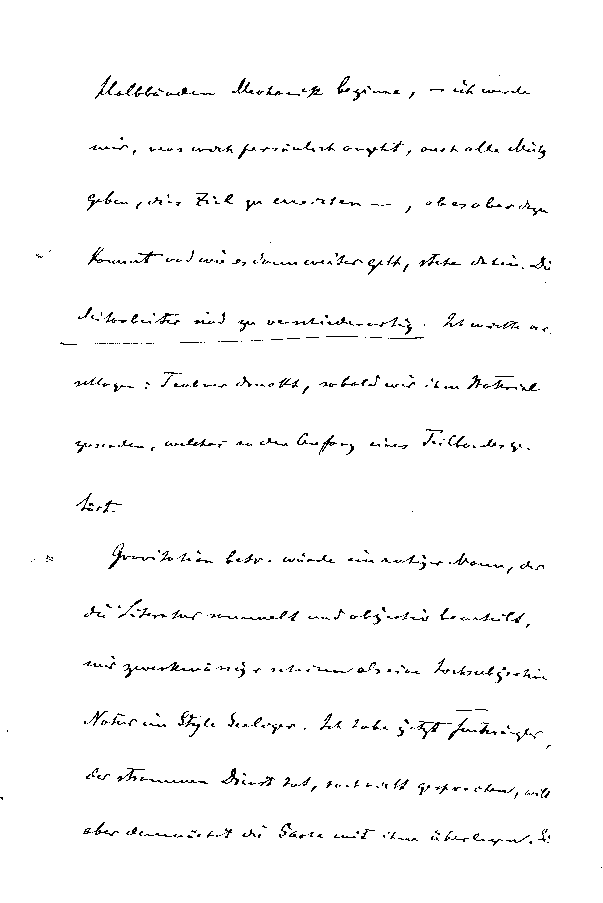 Halbbänden Mechanik beginne, – ich werde
mir, was mich persönlich angeht, auch alle Mühe
geben, dies Ziel zu erreichen —, ob es aber dazu
kommt und wie es dann weiter geht, stehe dahin. Die
Mitarbeiter sind zu verschiedenartig. Ich möchte vor
schlagen: Teubner druckt, sobald wir ihm Material
zusenden, welches an den Anfang eines Teilbandes ge-
hört.
Gravitation betr. würde ein ruhiger Mann, der
die Literatur sammelt und objectiv beurteilt,
mir zweckmässiger scheinen als eine hochsubjective
Natur im Style Seeliger. Ich habe jetzt
der strammen Dienst hat, noch nicht gesprochen, will
aber demnächst die Sache mit ihm überlegen. Sie